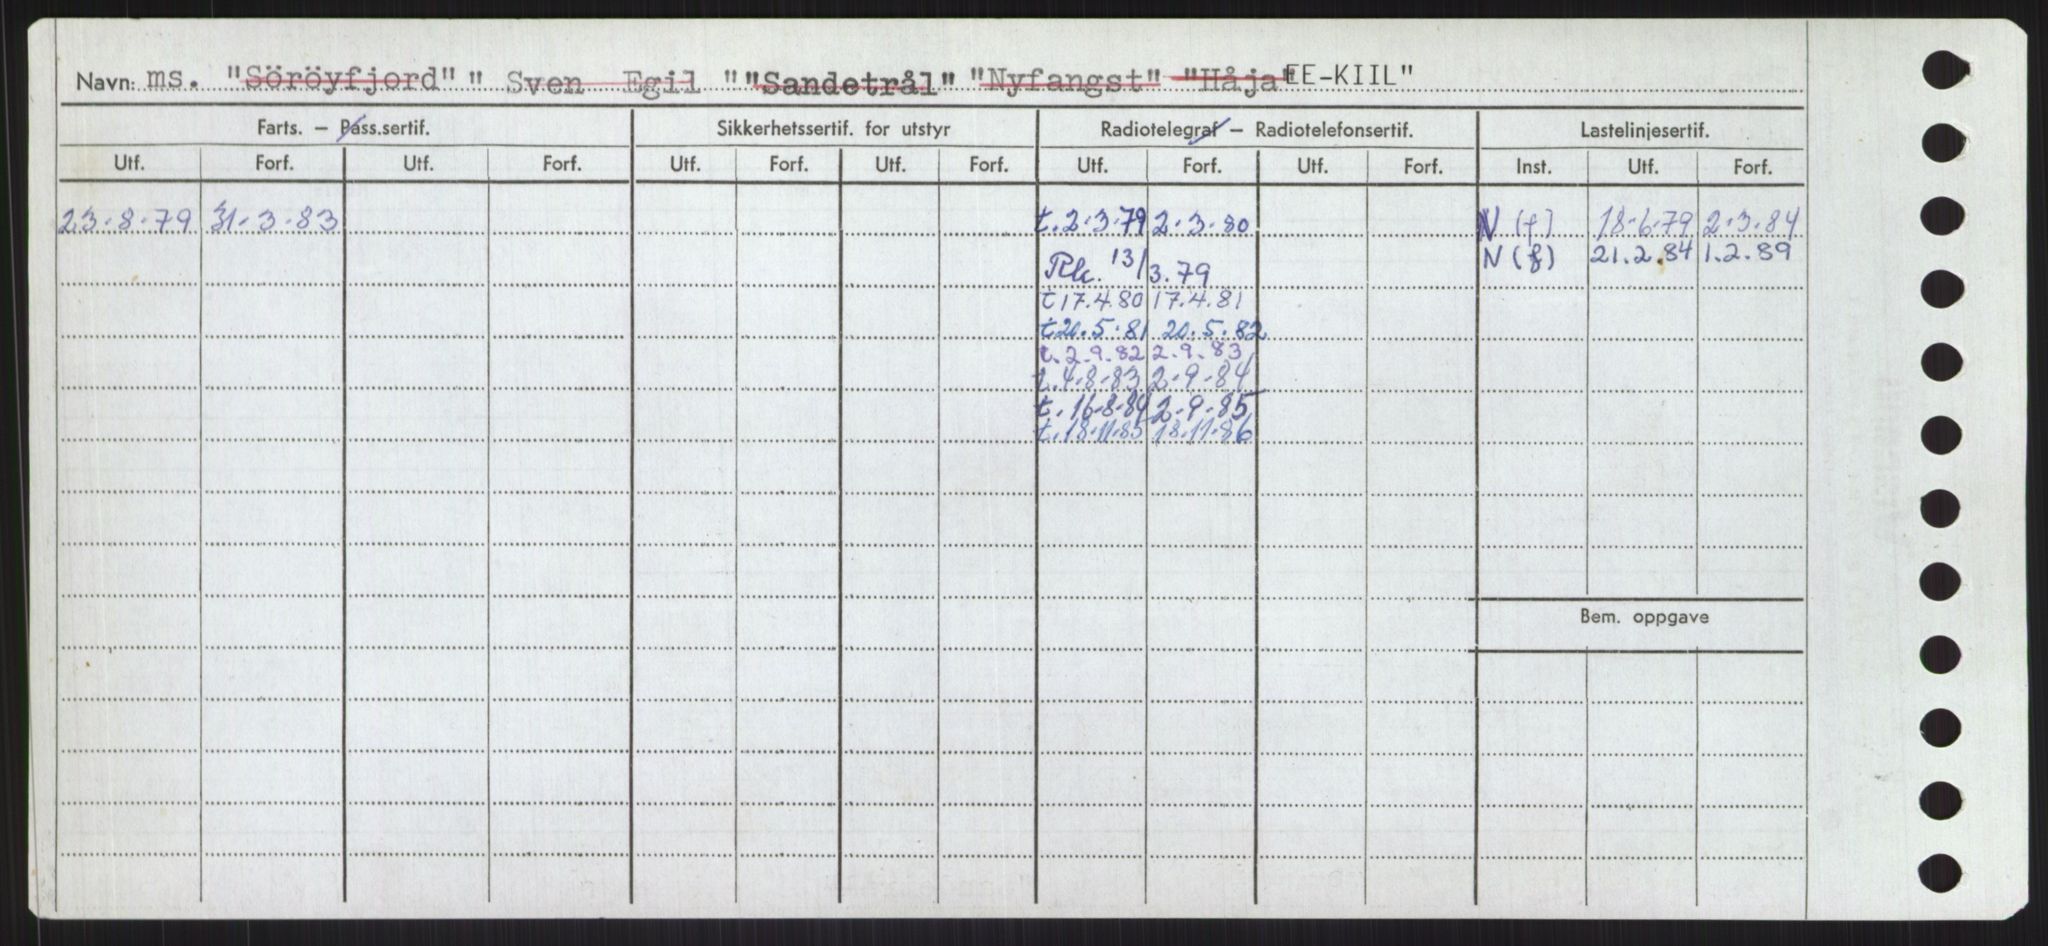 Navn: ms. "Söröyfjord" " Sven Egil " "Sandetrål" "Nyfangst" "Håja" EE-KIIL"
Farts. – Pass.sertif. Sikkerhetssertif. for utstyr Radiotelegraf – Radiotelefonsertif. Lastelinjesertif.
Utf. Forf. Utf. Forf. Utf. Forf. Utf. Forf. Utf. Forf. Utf. Forf. Inst. Utf. Forf.
23-8-79 31-3-83 t.2-3-79 2-3-80 N (f) 18-6-79 2-3-84
N (f) 21.2.84 1.2.89
Rk. 13/3.79
t 17.4.80 17.4.81
t 20.5.81 20.5.82
t.2.9.82 2.9.83
t.4-8-83 2-9-84
t.16-8-84 2-9-85
t.18-11-85 18-11-86
Bem. oppgave